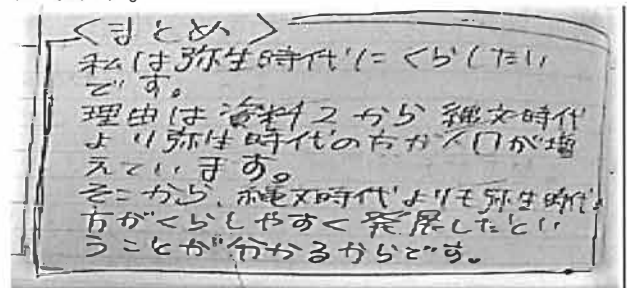 <まとめ>
私は弥生時代にくらしたい
です。
理由は資料2から縄文時代
より弥生時代の方が人口が増
えています。
そこから、縄文時代よりも弥生時代
方がくらしやすく発展したとい
うことが分かるからです。